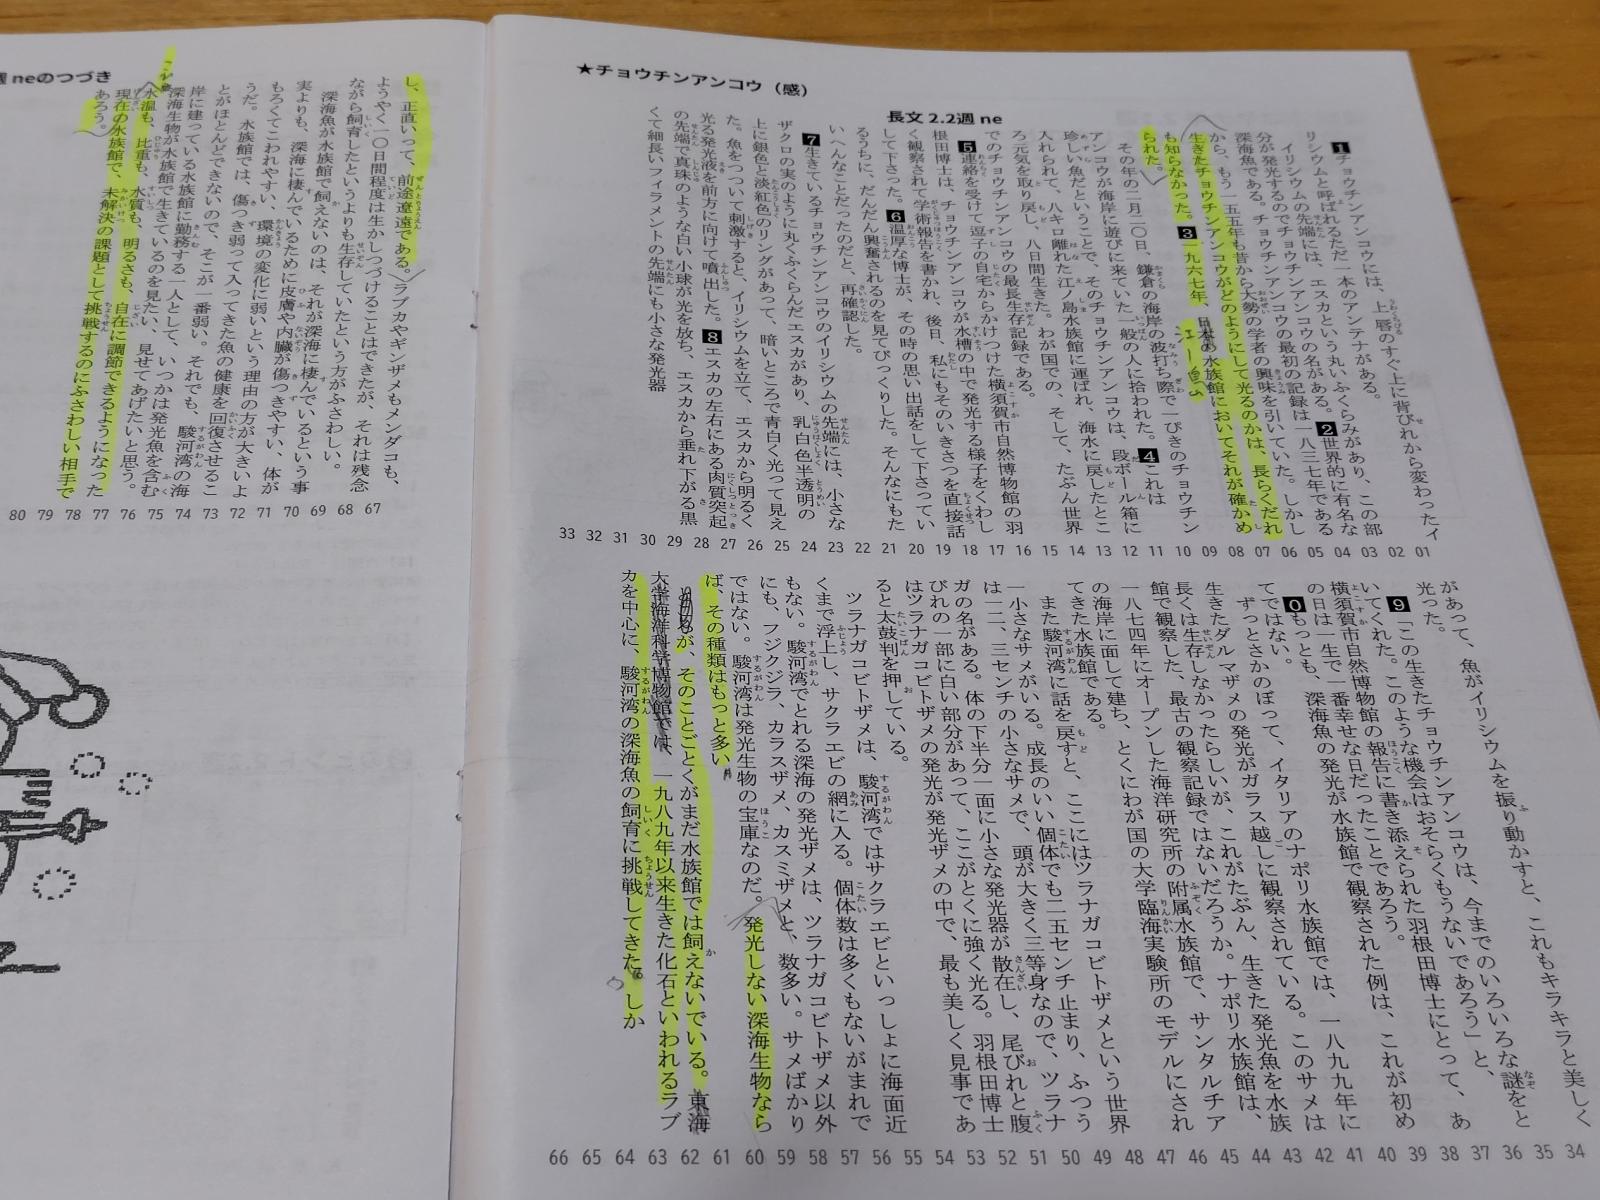 ★チョウチンアンコウ（感）
長文 2.2週 ne
1チョウチンアンコウには、上唇のすぐ上に背びれから変わったイ
リシウムと呼ばれるただ一本のアンテナがある。
イリシウムの先端には、エスカという丸いふくらみがあり、この部
分が発光するのでチョウチンアンコウの名がある。2世界的に有名な
深海魚である。チョウチンアンコウの最初の記録は一八三七年である
から、もう一五五年も昔から大勢の学者の興味を引いていた。しかし
生きたチョウチンアンコウがどのようにして光るのかは、長らくだれ
も知らなかった。3一九六七年、日本の水族館においてそれが確かめ
られた。
その年の二月二〇日、鎌倉の海岸の波打ち際で一ぴきのチョウチン
アンコウが海岸に遊びに来ていた一般の人に拾われた。4これは
珍しい魚だということで、そのチョウチンアンコウは、段ボール箱に
入れられて、八キロ離れた江ノ島水族館に運ばれ、海水に戻したとこ
ろ元気を取り戻し、八日間生きた。わが国での、そして、たぶん世界
でのチョウチンアンコウの最長生存記録である。
5連絡を受けて逗子の自宅からかけつけた横須賀市自然博物館の羽
根田博士は、チョウチンアンコウが水槽の中で発光する様子をくわし
く観察されて学術報告を書かれ、後日、私にもそのいきさつを直接話
して下さった。6温厚な博士が、その時の思い出話をして下さってい
るうちに、だんだん興奮されるのを見てびっくりした。そんなにもた
いへんなことだったのだと、再確認した。
7生きているチョウチンアンコウのイリシウムの先端には、小さな
ザクロの実のように丸くふくらんだエスカがあり、乳白色半透明の
上に銀色と淡紅色のリングがあって、暗いところで青白く光って見え
た。魚をつついて刺激すると、イリシウムを立て、エスカから明るく
光る発光液を前方に向けて噴出した。8エスカの左右にある肉質突起
の先端で真珠のような白い小球が光を放ち、エスカから垂れ下がる黒
くて細長いフィラメントの先端にも小さな発光器
01 02 03 04 05 06 07 08 09 10 11 12 13 14 15 16 17 18 19 20 21 22 23 24 25 26 27 28 29 30 31 32 33
があって、魚がイリシウムを振り動かすと、これもキラキラと美しく
光った。
9「この生きたチョウチンアンコウは、今までのいろいろな謎をと
いてくれた。このような機会はおそらくもうないであろう」と、
横須賀市自然博物館の報告に書き添えられた羽根田博士にとって、あ
の日は一生で一番幸せな日だったことであろう。
0もっとも、深海魚の発光が水族館で観察された例は、これが初め
てではない。
ずっとさかのぼって、イタリアのナポリ水族館では、一八九九年に
生きたダルマザメの発光がガラス越しに観察されている。このサメは
長くは生存しなかったらしいが、これがたぶん、生きた発光魚を水族
館で観察した、最古の観察記録ではないだろうか。ナポリ水族館は、
一八七四年にオープンした海洋研究所の附属水族館で、サンタルチア
の海岸に面して建ち、とくにわが国の大学臨海実験所のモデルにされ
てきた水族館である。
また駿河湾に話を戻すと、ここにはツラナガコビトザメという世界
一小さなサメがいる。成長のいい個体でも二五センチ止まり、ふつう
は一二、三センチの小さなサメで、頭が大きく三等身なので、ツラナ
ガの名がある。体の下半分一面に小さな発光器が散在し、尾びれと腹
びれの一部に白い部分があって、ここがとくに強く光る。羽根田博士
はツラナガコビトザメの発光が発光ザメの中で、最も美しく見事であ
ると太鼓判を押している。
ツラナガコビトザメは、駿河湾ではサクラエビといっしょに海面近
くまで浮上し、サクラエビの網に入る。個体数は多くもないがまれで
もない。駿河湾でとれる深海の発光ザメは、ツラナガコビトザメ以外
にも、フジクジラ、カラスザメ、カスミザメと、数多い。サメばかり
ではない。駿河湾は発光生物の宝庫なのだ。発光しない深海生物なら
ば、その種類はもっと多い
が、そのことごとくがまだ水族館では飼えないでいる。東海
大学海洋科学博物館では、一九八九年以来生きた化石といわれるラブ
カを中心に、駿河湾の深海魚の飼育に挑戦してきた。しか
34 35 36 37 38 39 40 41 42 43 44 45 46 47 48 49 50 51 52 53 54 55 56 57 58 59 60 61 62 63 64 65 66
週 neのつづき
し、正直いって、前途遼遠である。ラブカやギンザメもメンダコも、
ようやく一〇日間程度は生かしつづけることはできたが、それは残念
ながら飼育したというよりも生存していたという方がふさわしい。
深海魚が水族館で飼えないのは、それが深海に棲んでいるという事
実よりも、深海に棲んでいるために皮膚や内臓が傷つきやすい、体が
もろくてこわれやすい、環境の変化に弱いという理由の方が大きいよ
うだ。水族館では、傷つき弱って入ってきた魚の健康を回復させるこ
とがほとんどできないので、そこが一番弱い。それでも、駿河湾の海
岸に建っている水族館に勤務する一人として、いつかは発光魚を含む
深海生物が水族館で生きているのを見たい、見せてあげたいと思う。
水温も、比重も、水質も、明るさも、自在に調節できるようになった
現在の水族館で、未解決の課題として挑戦するのにふさわしい相手で
あろう。
67 68 69 70 71 72 73 74 75 76 77 78 79 80